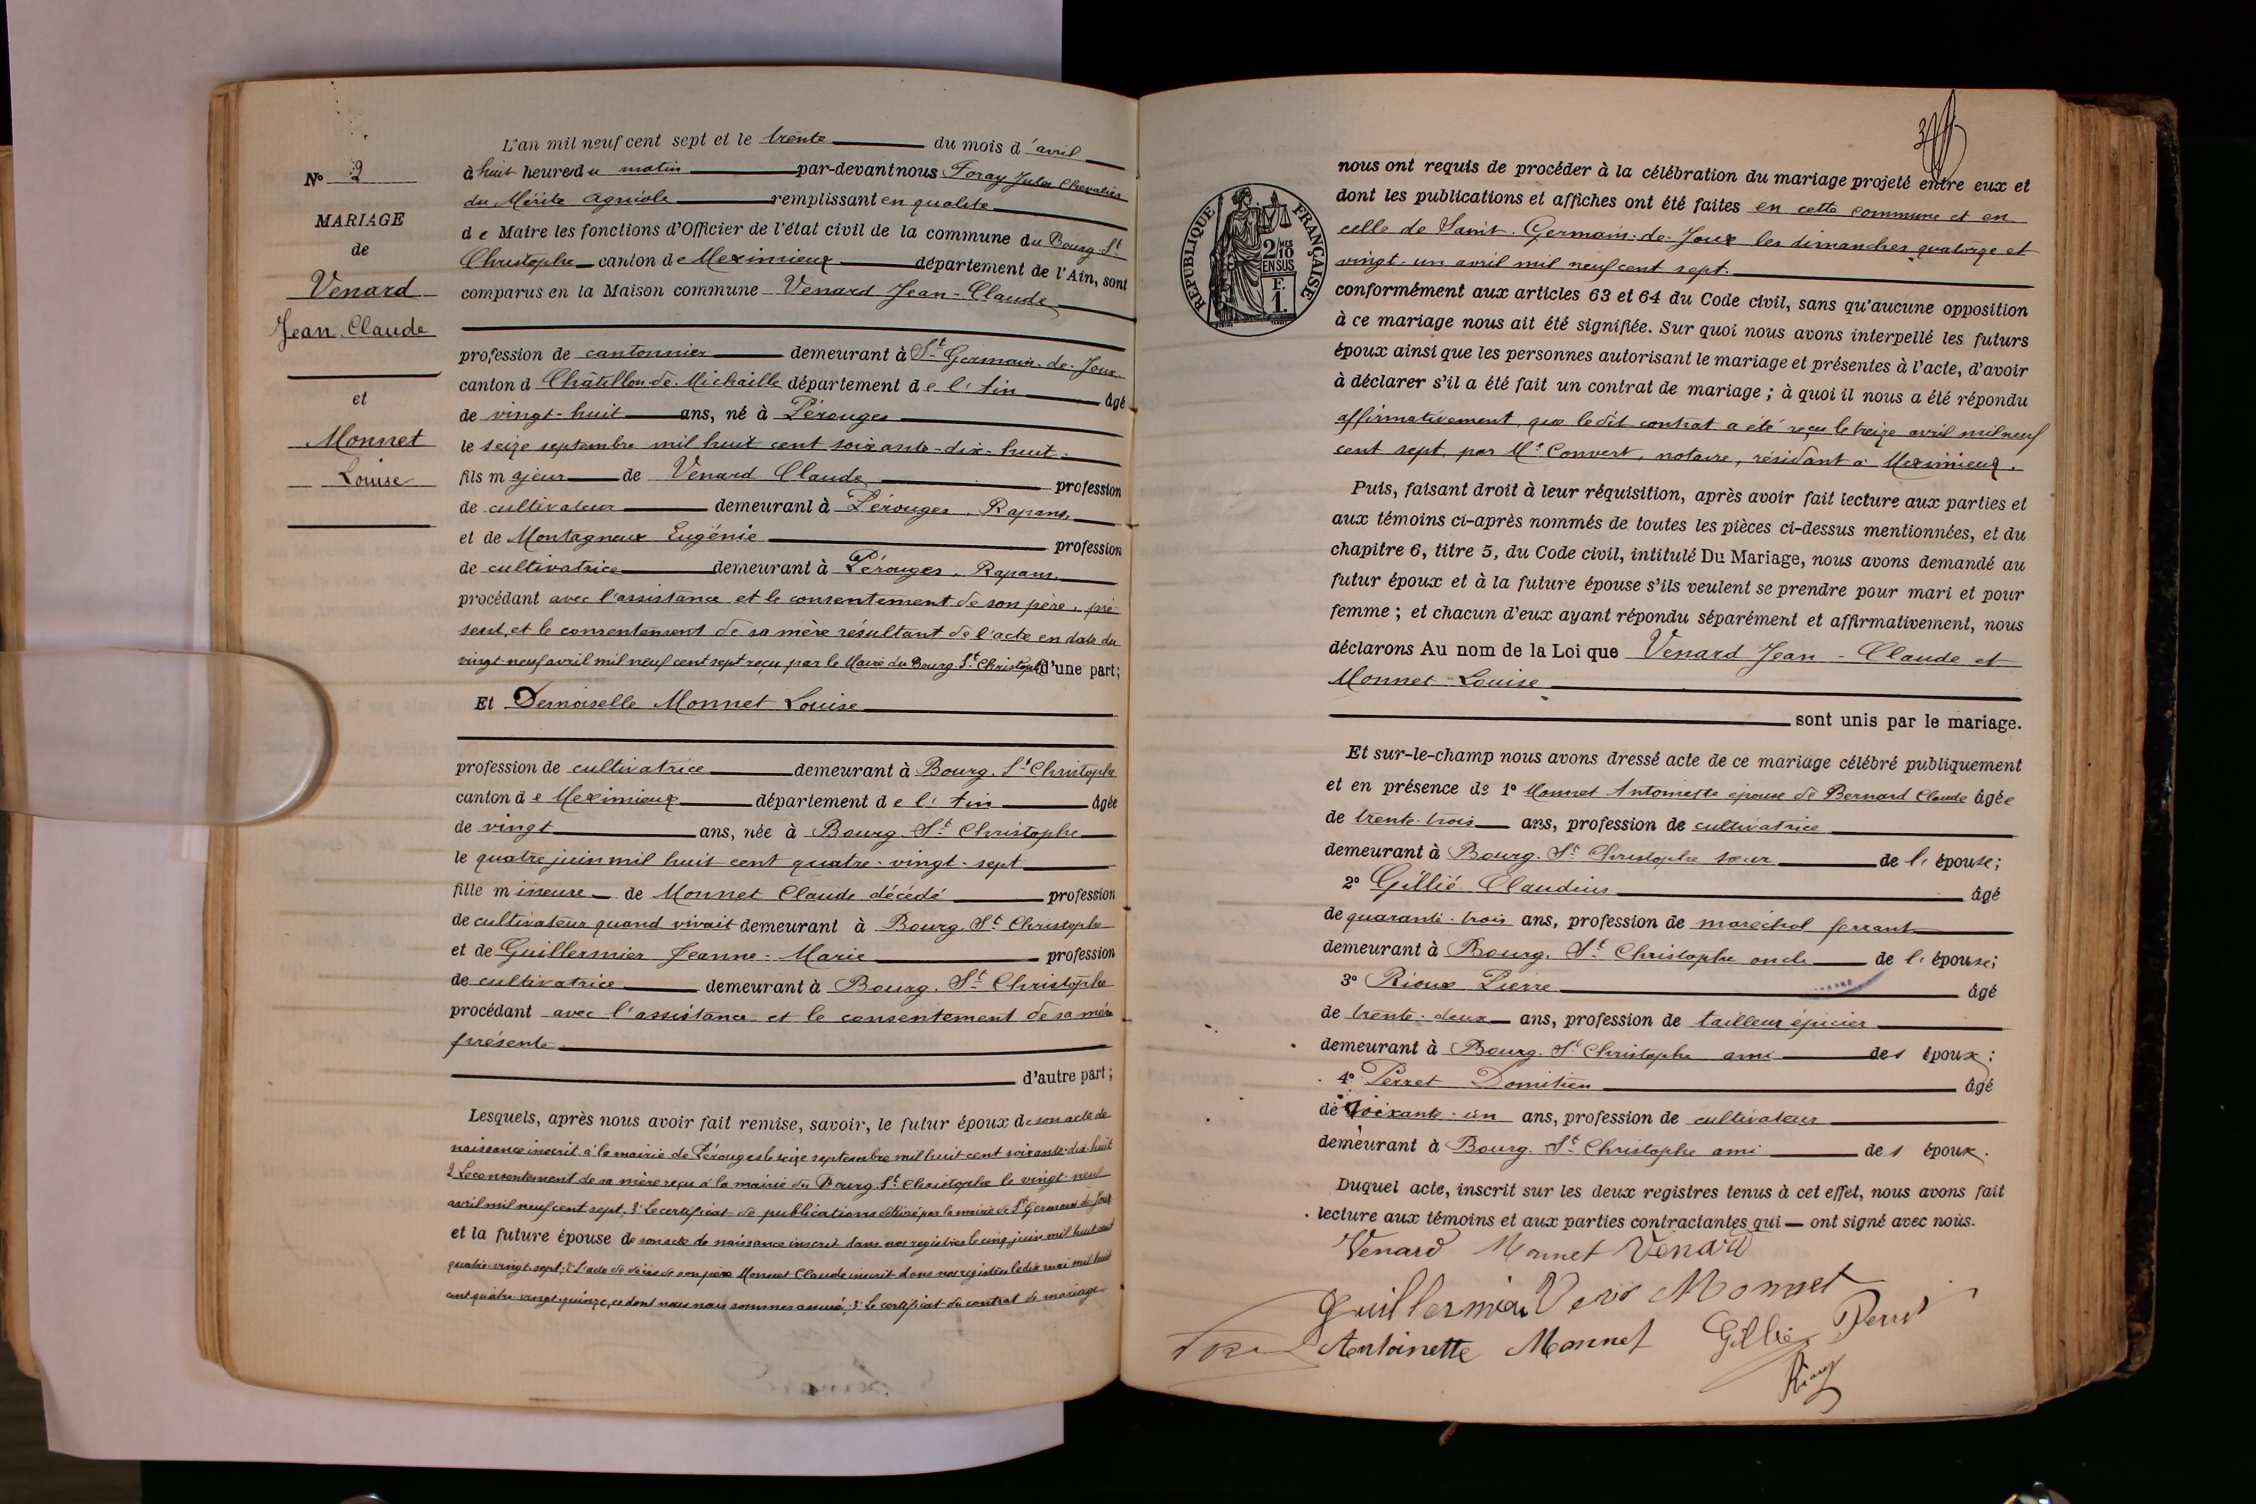 N° 2
MARIAGE
de
Venard
Jean-Claude
et
Monnet
Louise
L'an mil neuf cent sept et le trente du mois d'avril
à huit heures du matin par-devant nous Foray Jules Chevalier
du Mérite agricole remplissant en qualité
de Maire les fonctions d'Officier de l'état civil de la commune du Bourg-St
Christophe canton de Meximieux département de l'Ain, sont
comparus en la Maison commune Venard Jean-Claude
profession de cantonnier demeurant à St Germain-de-Joux
canton d Châtillon-de-Michaille département de l'Ain âgé
de vingt-huit ans, né à Pérouges
le seize septembre mil huit cent soixante-dix-huit
fils majeur de Venard Claude profession
de cultivateur demeurant à Pérouges, Rapans,
et de Montagneux Eugénie profession
de cultivatrice demeurant à Pérouges, Rapans,
procédant avec l'assistance et le consentement de son père, pré-
sent, et le consentement de sa mère résultant de l'acte en date du
vingt neuf avril mil neuf cent sept reçu par le Maire du Bourg-St Christophe d'une part;
Et Demoiselle Monnet Louise
profession de cultivatrice demeurant à Bourg-St Christophe
canton de Meximieux département de l'Ain âgée
de vingt ans, née à Bourg-St Christophe
le quatre juin mil huit cent quatre-vingt-sept
fille mineure de Monnet Claude décédé profession
de cultivateur quand vivait demeurant à Bourg-St Christophe
et de Guillermier Jeanne-Marie profession
de cultivatrice demeurant à Bourg-St Christophe
procédant avec l'assistance et le consentement de sa mère
présente
d'autre part;
Lesquels, après nous avoir fait remise, savoir, le futur époux de son acte de
naissance inscrit à la mairie de Pérouges le seize septembre mil huit cent soixante-dix-huit
2° Le consentement de sa mère reçu à la mairie du Bourg-St Christophe le vingt-neuf
avril mil neuf cent sept; 3° Le certificat de publications délivré par la mairie de St Germain-de-Joux
et la future épouse de son acte de naissance inscrit dans nos registres le cinq juin mil huit cent
quatre-vingt-sept; 2° L'acte de décès de son père Monnet Claude inscrit dans nos registres le dix mai mil huit
cent quatre-vingt-quinze, ce dont nous nous sommes assuré; 3° Le certificat du contrat de mariage
RÉPUBLIQUE FRANÇAISE
2/10 MES
EN SUS
F.
1.
nous ont requis de procéder à la célébration du mariage projeté entre eux et
dont les publications et affiches ont été faites en cette commune et en
celle de Saint-Germain-de-Joux les dimanches quatorze et
vingt-un avril mil neuf cent sept.
conformément aux articles 63 et 64 du Code civil, sans qu'aucune opposition
à ce mariage nous ait été signifiée. Sur quoi nous avons interpellé les futurs
époux ainsi que les personnes autorisant le mariage et présentes à l'acte, d'avoir
à déclarer s'il a été fait un contrat de mariage; à quoi il nous a été répondu
affirmativement, que ledit contrat a été reçu le treize avril mil neuf
cent sept par Me Convert, notaire, résidant à Meximieux.
Puis, faisant droit à leur réquisition, après avoir fait lecture aux parties et
aux témoins ci-après nommés de toutes les pièces ci-dessus mentionnées, et du
chapitre 6, titre 5, du Code civil, intitulé Du Mariage, nous avons demandé au
futur époux et à la future épouse s'ils veulent se prendre pour mari et pour
femme; et chacun d'eux ayant répondu séparément et affirmativement, nous
déclarons Au nom de la Loi que Venard Jean-Claude et
Monnet Louise
sont unis par le mariage.
Et sur-le-champ nous avons dressé acte de ce mariage célébré publiquement
et en présence de 1° Monnet Antoinette épouse de Bernard Claude âgée
de trente-trois ans, profession de cultivatrice
demeurant à Bourg-St Christophe sœur de l'épouse;
2° Gillié Claudius âgé
de quarante-trois ans, profession de maréchal ferrant
demeurant à Bourg-St Christophe oncle de l'épouse;
3° Rioux Pierre âgé
de trente-deux ans, profession de tailleur épicier
demeurant à Bourg-St Christophe ami des époux;
4° Perret Domitien âgé
de soixante-un ans, profession de cultivateur
demeurant à Bourg-St Christophe ami des époux.
Duquel acte, inscrit sur les deux registres tenus à cet effet, nous avons fait
lecture aux témoins et aux parties contractantes qui ont signé avec nous.
Venard Monnet Venard
Guillermier Monnet
Antoinette Monnet Gillié Perret
Rioux